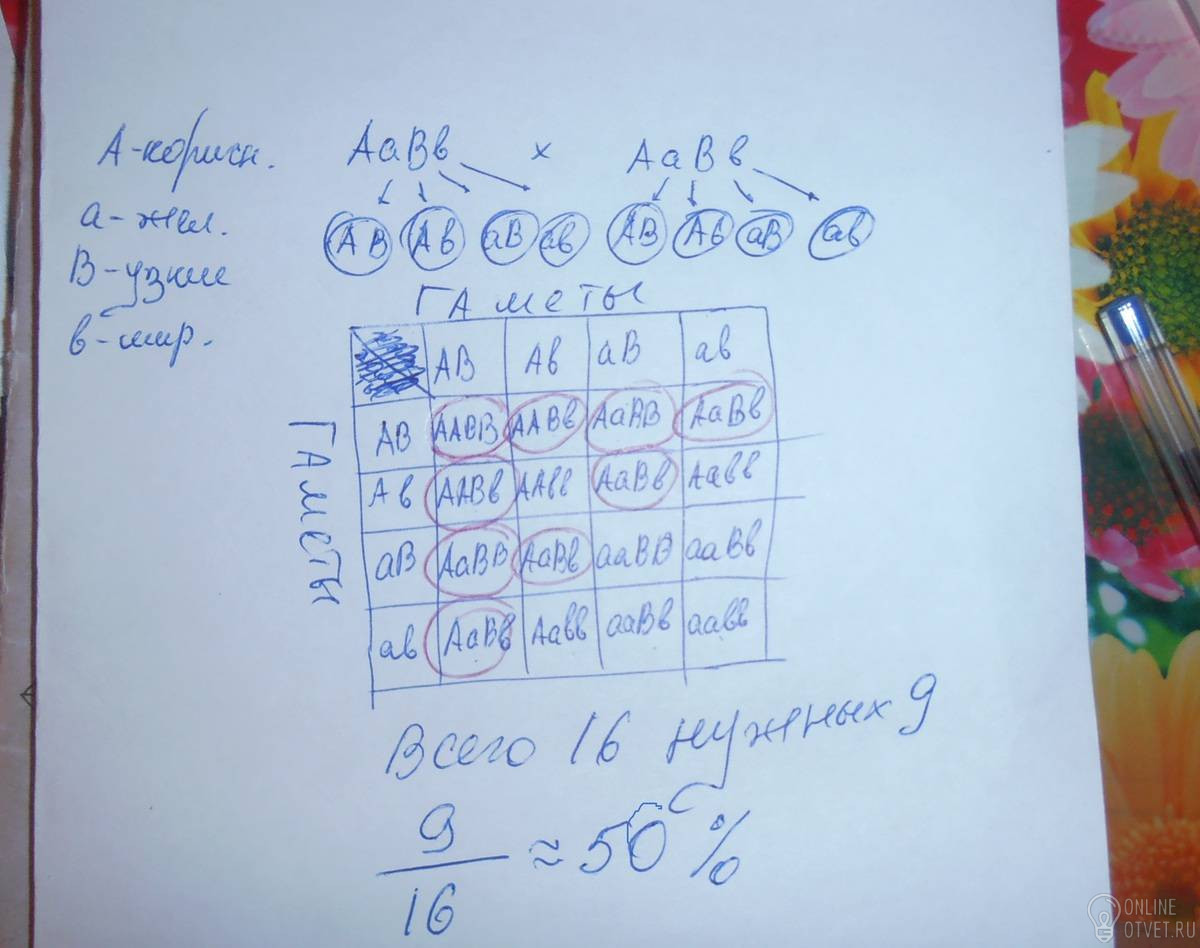 А-коричн. АаВв × АаВв
а-жел. АВ Ав аВ ав АВ Ав аВ ав
В-узкие
в-шир.
ГАметы
ГАметы
АВ Ав аВ ав
АВ ААВВ ААВв АаВВ АаВв
Ав ААВв ААвв АаВв Аавв
аВ АаВВ АаВв ааВВ ааВв
ав АаВв Аавв ааВв аавв
Всего 16 нужных 9
9
16
≈ 50 %
ONLINE
OTVET.RU